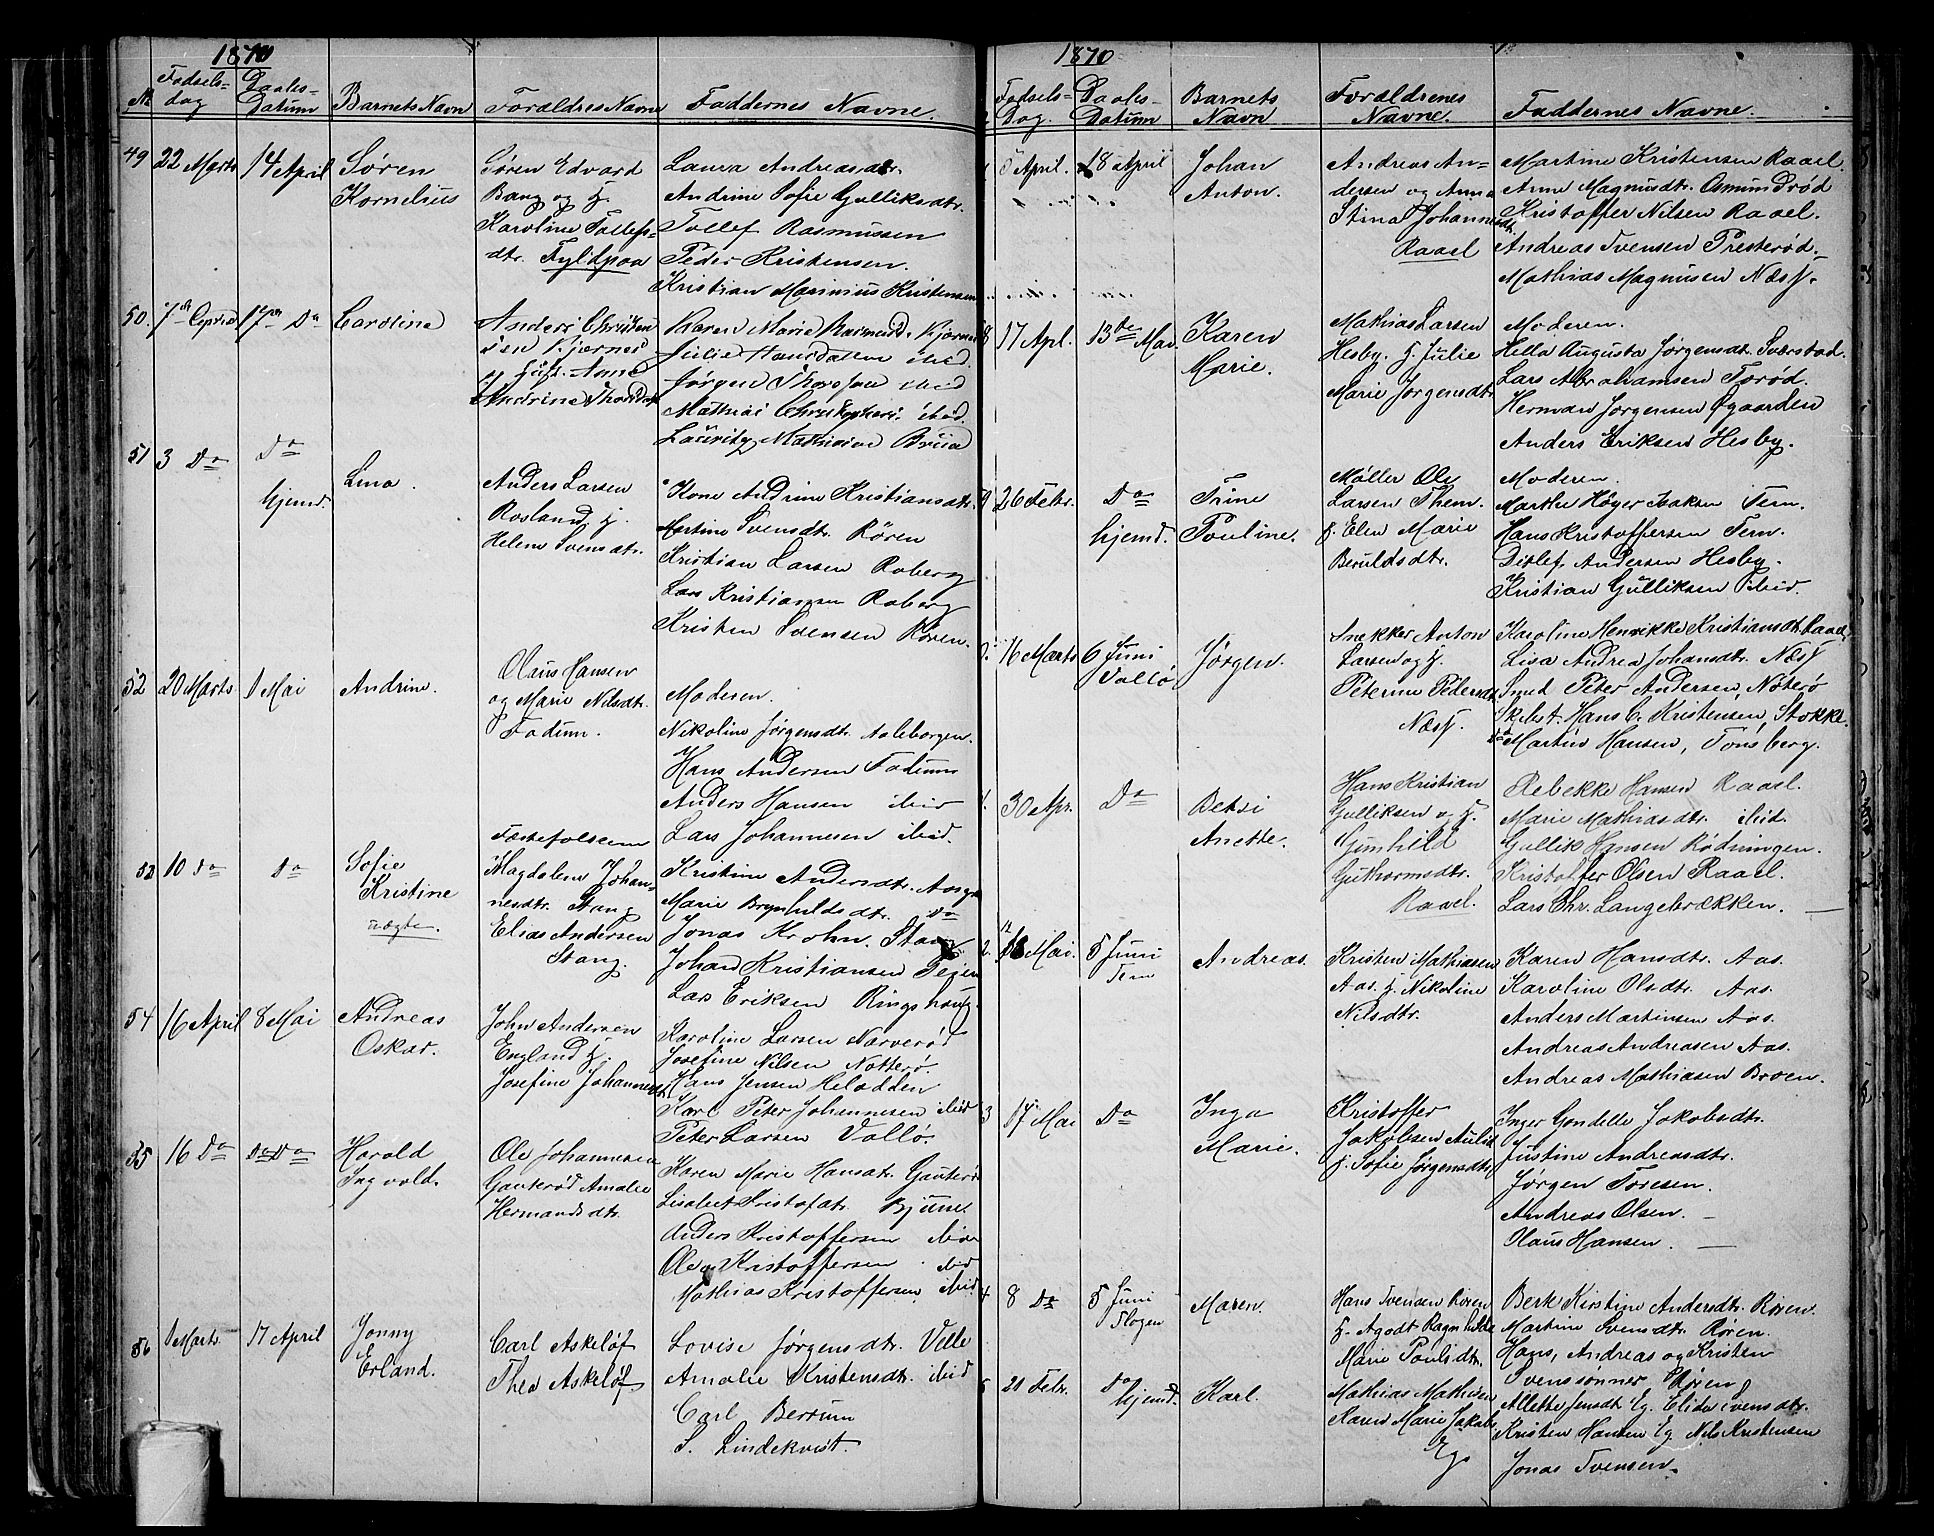 1870
No Fødsels-dag Daabs-Datum Barnets Navn Forældres Navne Faddernes Navne.
49 22 Marts 14 April Søren Kornelius
Søren Edvard
Bang og H.
Karoline Tollefs-
dtr. Fyldpaa
Laura Andreasdtr.
Andrine Sofie Gulliksdtr.
Tollef Rasmussen
Peder Kristensen.
Kristian Marinius Kristensen
50. 7de April 17de Do Caroline
Anders Christen
sen Kjærnes
Anne
Andrine
Karen Marie Rasmusd. Kjærnes
Julie ibid.
Jørgen ibid
Mathias ibid.
Lauritz Mathisen
51 3 Do Do hjemd. Lina.
Anders Larsen
Rosland H.
Helene Svensdtr.
Kone Andrine Kristiansdtr.
Martine Svensdtr. Røren
Kristian Larsen Roberg
Lars Kristiansen Roberg
Kristen Svensen Røren.
52 20 Marts 1 Mai Andrine.
Olaus Hansen
og Marie Nilsdtr.
Fodum.
Moderen.
Nikoline Jørgensdtr. Aaleborgen.
Hans Andersen Fodum
Anders Hansen ibid
Lars Johannesen ibid.
53 10 Do Do Sofie Kristine uægte.
Fæstefolkene
Magdalene Johan-
nesdtr. Stang
Elias Andersen
Stang.
Kristine Andersdtr.
Marie Brynhildsdtr. Do
Jonas Krohn Stang
Johan Kristiansen Teien
Lars Eriksen Ringshaug.
54 16 April 8 Mai Andreas Oskar.
John Andersen
England H.
Josefine Johannesdtr.
Karoline Larsen Narverød
Josefine Nilsen Nøtterø.
Hans Jensen Helodden
Karl Peter Johannesen ibid
Peter Larsen Vallø.
55 16 Do Do Do Harald Ingvold.
Ole Johannesen
Gauterød Amalie
Hermandsdtr.
Karen Marie Hansdtr. Gauterød
Lisabet Kristofdtr. Bjune
Anders Kristoffersen ibid
Ole Kristoffersen ibid
Mathias Kristoffersen ibid
56 1 Marts 17 April Jonny Erland.
Carl Askeløf
Thea Askeløf
Lovise Jørgensdtr. Velle
Amalie Kristensdtr. ibid
Carl Berrum
S. Lindekvist.
1870
Fødsels-Dag. Daabs-Datum Barnets Navn Forældrenes Navne. Faddernes Navne.
5 April. 18 April Johan Anton.
Andreas An-
dersen og Anna
Stina Johannesdtr.
Raael
Martine Kristensen Raael.
Anne Magnusdtr. Osmundrød
Kristoffer Nilsen Raael.
Andreas Svensen Presterød.
Mathias Magnusen Næss.
8 17 Apl. 13de Mai. Karen Marie.
Mathias Larsen
Hesby. H. Julie
Marie Jørgensdtr.
Moderen.
Hella Augusta Jørgensdtr. Sværstad.
Lars Abrahamsen Torød.
Herman Jørgensen Øgaarden
Anders Eriksen Hesby.
9 26 Febr. Do hjemd. Trine Pouline.
Møller Ole
Larsen Them.
H. Elen Marie
Beruldsdtr.
Moderen.
Marthe Høger Isaksen Tem.
Hans Kristoffersen Tem.
Ditlef Andersen Hesby.
Kristian Gulliksen ibid.
0. 16 Marts 6 Juni Vallø Jørgen.
Snekker Anton
Larsen og H.
Peterine Pedersdtr.
Næss.
Karoline Henrikke Kristiansdt. Raael
Lisa Andrea Johansdtr. Næss
Smed Peter Andersen, Nøterø
Skibst. Hans C. Kristensen, Stokke.
Do Martin Hansen, Tønsberg.
1. 30 Apr. Do Betsi Anette.
Hans Kristian
Gulliksen og H.
Gunhild
Guthormsdtr.
Raael.
Rebekke Hansen Raael.
Marie Mathiasdtr. ibid.
Gullik Hansen Rødningen.
Kristoffer Olsen Raael.
Lars Chr. Langebrækken.
2. 18 Mai. 5 Juni Tem Andreas.
Kristen Mathiasen
Aas. H. Nikoline
Nilsdtr.
Karen Hansdtr. Aas.
Karoline Olsdtr. Aas.
Anders Martinsen Aas.
Andreas Andreasen Aas.
Andreas Mathiasen Broen.
3 17 Mai Do Inga Marie.
Kristoffer
Jakobsen Aulid
H. Sofie Jørgensdtr.
Inger Gondelle Jakobsdtr.
Justine Andreasdtr.
Jørgen Toresen.
Andreas Olsen.
Olaus Hansen.
4 8 Do 5 Juni Slagen Maren.
Hans Svensen Røren
H. Agodt Ragnhilda
Marie Poulsdtr.
Berk Kirstine Andersdtr. Røren.
Martine Svensdtr. Røren.
Hans, Andreas og Kristen
Svenssønner Røren
5 21 Febr. Do hjemd. Karl.
Mathias Mathisen
Karen Marie Jakobs
Eg.
Allette Jensdt. Eg. Elida Svensdtr.
Kristen Hansen Eg Nils Kristensen
Jonas Svensen.